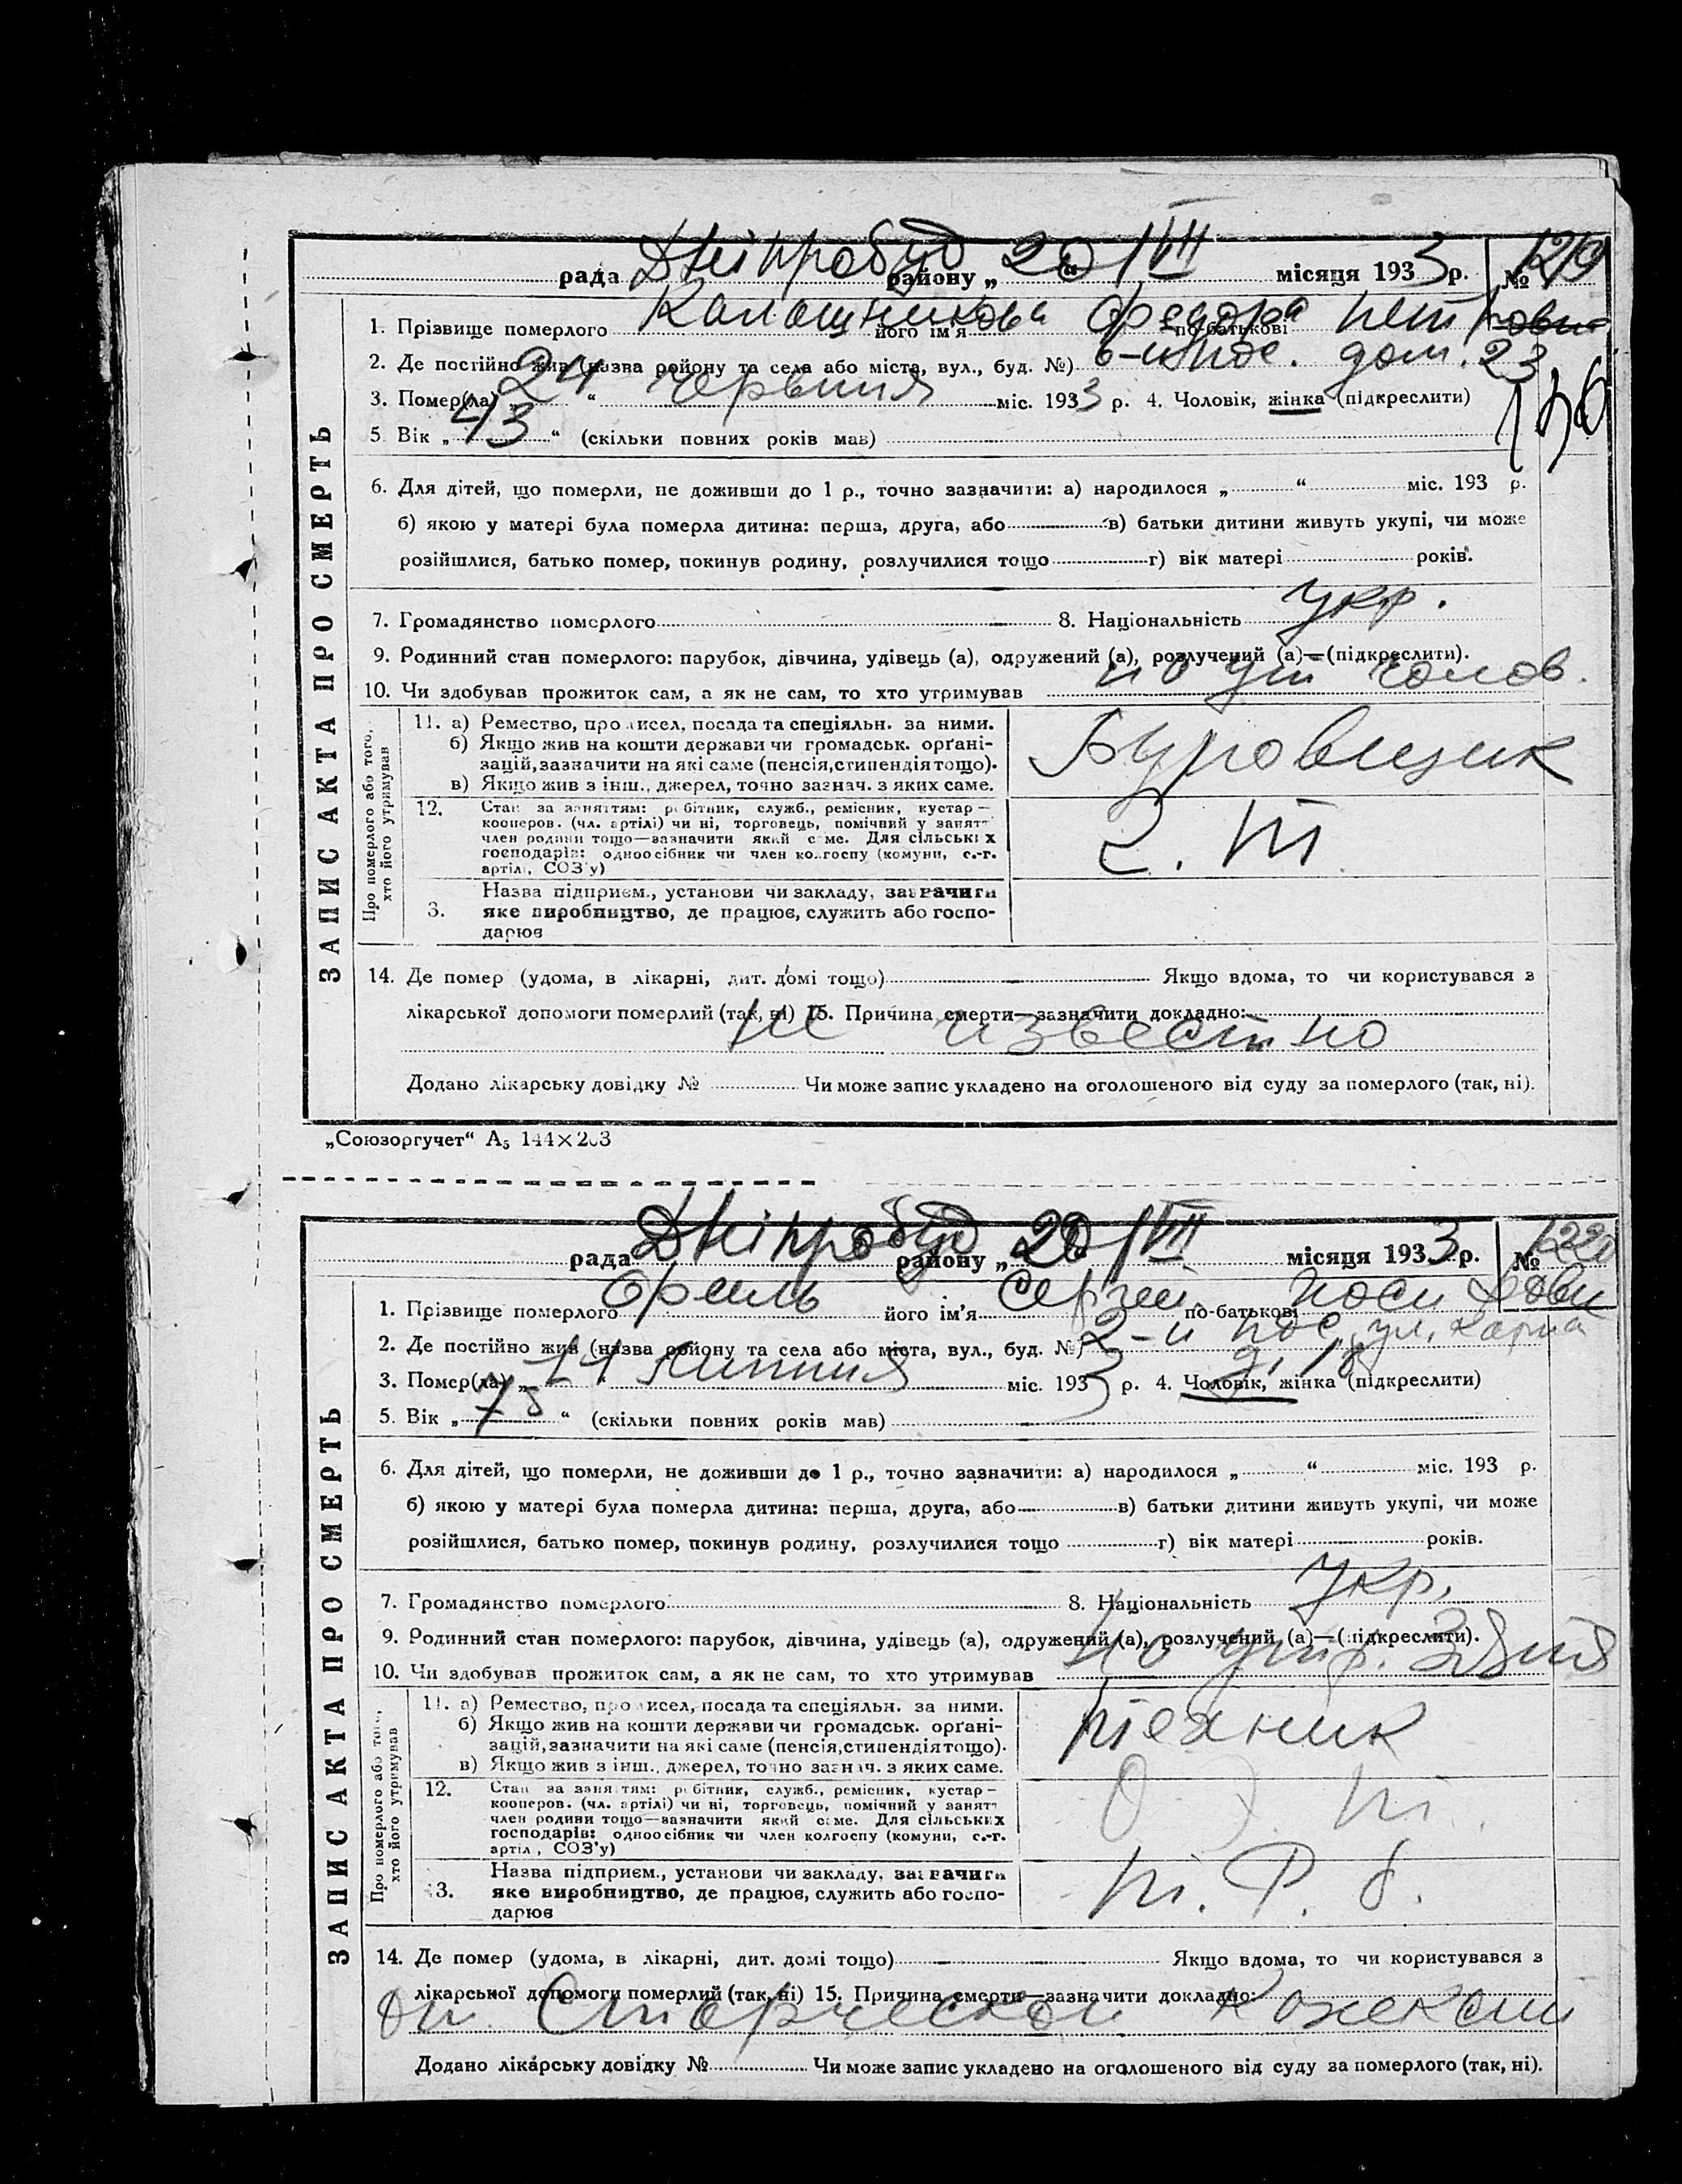 рада Дніпробуд району „ 20 " VII місяця 1933 р. № 1219
1. Прізвище померлого Калашникова його ім'я Федора по-батькові Петровна
2. Де постійно жив (назва району та села або міста, вул., буд. №) 6-й пос. дом. 23
3. Помер(ла) „ 24 " червння міс. 1933 р. 4. Чоловік, жінка (підкреслити)
136
5 Вік „ 43 " (скільки повних років мав)
6. Для дітей, що померли, не доживши до 1 р., точно зазначити: а) народилося „ " міс. 193 р.
б) якою у матері була померла дитина: перша, друга, або в) батьки дитини живуть укупі, чи може
розійшлися, батько помер, покинув родину, розлучилися тощо г) вік матері років.
7. Громадянство померлого 8. Національність Укр.
9. Родинний стан померлого: парубок, дівчина, удівець (а), одружений (а), розлучений (а)—(підкреслити).
10. Чи здобував прожиток сам, а як не сам, то хто утримував на ут чолов.
ЗАПИС АКТА ПРО СМЕРТЬ
Про померлого або того, хто його утримував
11. а) Ремество, промисел, посада та спеціяльн. за ними.
б) Якщо жив на кошти держави чи громадськ. орґані-
зацій, зазначити на які саме (пенсія, стипендія тощо).
в) Якщо жив з інш., джерел, точно зазнач. з яких саме.
Буровщик
12. Стан за заняттям: робітник, служб., ремісник, кустар—
кооперов. (чл. артілі) чи ні, торговець, помічний у занятт
член родини тощо—зазначити який саме. Для сільських
господарів: одноосібник чи член колгоспу (комуни, с.-г.
артілі, СОЗ'у)
Назва підприєм., установи чи закладу, зазначити
3. яке виробництво, де працює, служить або госпо-
дарює
14. Де помер (удома, в лікарні, дит. домі тощо) Якщо вдома, то чи користувався з
лікарської допомоги померлий (так, ні) 15. Причина смерти—зазначити докладно:
не известно
Додано лікарську довідку № Чи може запис укладено на оголошеного від суду за померлого (так, ні).
„Союзоргучет" А₅ 144×203
рада Дніпробуд району „ 20 " VII місяця 1933 р. № 1220
1. Прізвище померлого Орель його ім'я Сергей по-батькові
2. Де постійно жив (назва району та села або міста, вул., буд. №) 2-й пос. ул.
д. 18
3. Помер(ла) „ " липння міс. 1933 р. 4. Чоловік, жінка (підкреслити)
5. Вік „ 78 " (скільки повних років мав)
6. Для дітей, що померли, не доживши до 1 р., точно зазначити: а) народилося „ " міс. 193 р.
б) якою у матері була померла дитина: перша, друга, або в) батьки дитини живуть укупі, чи може
розійшлися, батько помер, покинув родину, розлучилися тощо г) вік матері років.
7. Громадянство померлого 8. Національність Укр.
9. Родинний стан померлого: парубок, дівчина, удівець (а), одружений (а), розлучений (а)—(підкреслити).
10. Чи здобував прожиток сам, а як не сам, то хто утримував на утр. Зятя
ЗАПИС АКТА ПРО СМЕРТЬ
Про померлого або того, хто його утримував
11. а) Ремество, промисел, посада та спеціяльн. за ними.
б) Якщо жив на кошти держави чи громадськ. орґані-
зацій, зазначити на які саме (пенсія, стипендія тощо).
в) Якщо жив з інш., джерел, точно зазнач. з яких саме.
техник
12. Стан за заняттям: робітник, служб., ремісник, кустар—
кооперов. (чл. артілі) чи ні, торговець, помічний у занятт
член родини тощо—зазначити який саме. Для сільських
господарів: одноосібник чи член колгоспу (комуни, с.-г.
артіл, СОЗ'у)
Назва підприєм., установи чи закладу, зазначити
3. яке виробництво, де працює, служить або госпо-
дарює
14. Де помер (удома, в лікарні, дит. домі тощо) Якщо вдома, то чи користувався з
лікарської допомоги померлий (так, ні) 15. Причина смерти—зазначити докладно:
от Старческой
Додано лікарську довідку № Чи може запис укладено на оголошеного від суду за померлого (так, ні).